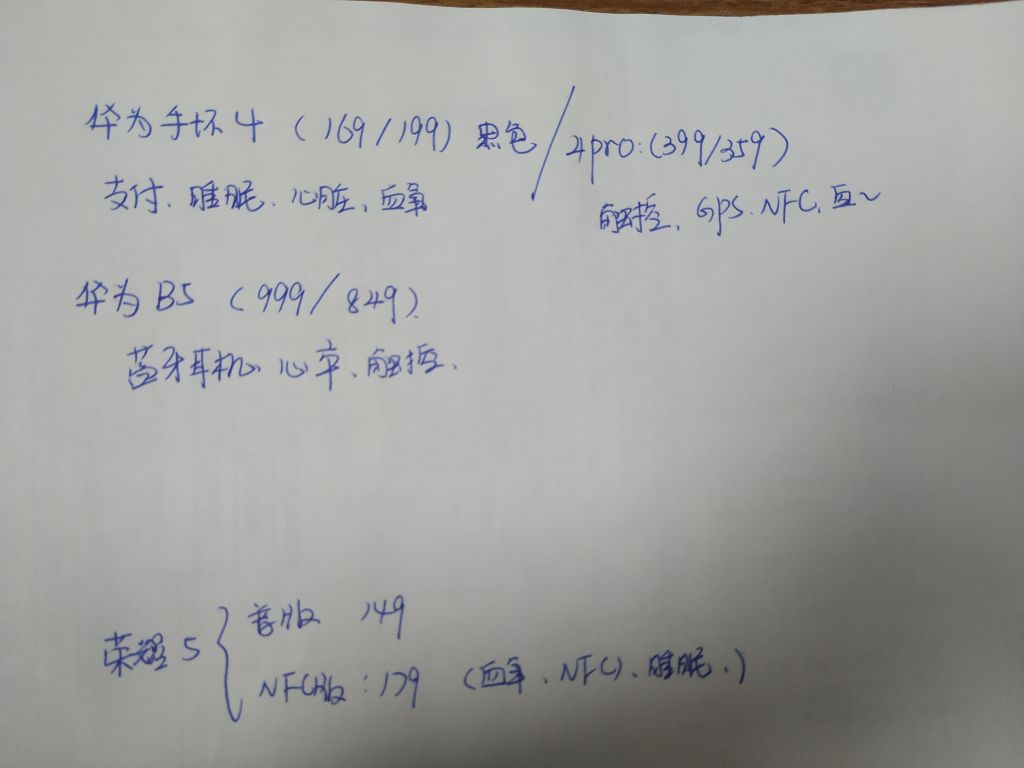 华为手环4 (169/199) 黑色 / 4pro:(399/359)
支付、睡眠、心脏、血氧
触控、GPS、NFC、血~
华为B5 (999/849)
蓝牙耳机、心率、触控、
荣耀5
普版 149
NFC版:179 (血氧、NFC)、睡眠、)